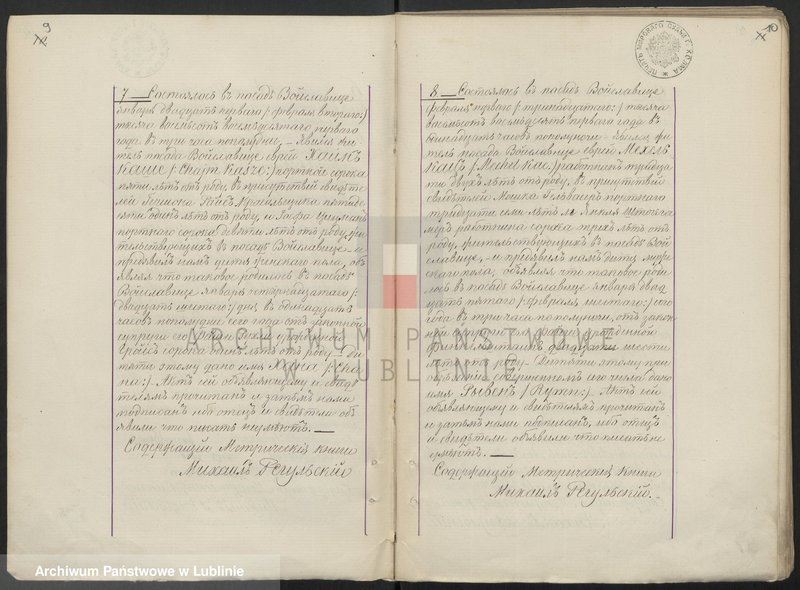 9
7 Состоялось въ посадѣ Войславице
января двадцать перваго /: февраля втораго :/
тысяча восемьсотъ восемьдесятаго перваго
года въ три часа пополудни, – Явился жи-
тель посада Войславице еврей Хаимъ
Каше /: Chajm Kasze :/ портной сорока
пяти лѣтъ отъ роду, въ присутствіи свидѣте-
лей
десяти одинъ лѣтъ отъ роду, и
портнаго сорока девяти лѣтъ отъ роду, жи-
тельствующихъ въ посадѣ Войславице – и
предъявилъ намъ дитя женскаго пола, объ-
являя что таковое родилось въ посадѣ
Войславице января четырнадцатаго /:
двадцать шестаго :/ дня, въ одинадцать
часовъ пополудни сего года отъ законной
супруги его
сорока лѣтъ отъ роду – Ди-
тяти этому дано имя Хана /: Cha-
na :/ Актъ сей объявляющему и свидѣ-
телямъ прочитанъ и затѣмъ нами
подписанъ ибо отецъ и свидѣтели объ-
явили что писать неумѣютъ. —
Содержащій Метрическія книги
Михаилъ Регульскій
10
8 Состоялось въ посадѣ Войславице
февраля перваго /: тринадцатаго :/ тысяча
восемьсотъ восемьдесятъ перваго года въ
одинадцать часовъ пополуночи – Явился жи-
тель посада Войславице еврей Мехель
Кацъ /: Mechel Kac :/ работникъ тридца-
ти двухъ лѣтъ отъ роду, въ присутствіи
свидѣтелей Мошка портнаго
тридцати семи лѣтъ и Янкеля
работника сорока трехъ лѣтъ отъ
роду, жительствующихъ въ посадѣ Вой-
славице, – и предъявилъ намъ дитя муж-
скаго пола, объявляя что таковое роди-
лось въ посадѣ Войславице января двад-
цать пятаго /: февраля шестаго :/ сего
года въ три часа пополуночи, отъ закон-
ной супруги его урожденной
двадцати шести
лѣтъ отъ роду – Дитяти этому при
обрѣзаніи совершенномъ сего числа дано
имя Рывенъ /: Rywen :/ Актъ сей
объявляющему и свидѣтелямъ прочитанъ
и затѣмъ нами подписанъ, ибо отецъ
и свидѣтели объявили что писать не
умѣютъ. —
Содержащій Метрическія книги
Михаилъ Регульскій.
ARCHIWUM PAŃSTWOWE
W LUBLINIE
Archiwum Państwowe w Lublinie